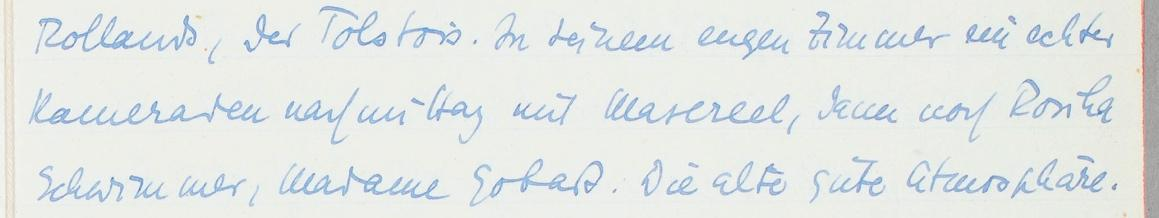 Rollands, der Tolstois. In seinem engen Zimmer ein echter
Kameradennachmittag mit Masereel, dann noch Rosika
Schwimmer, Madame Gobat. Die alte gute Atmosphäre.